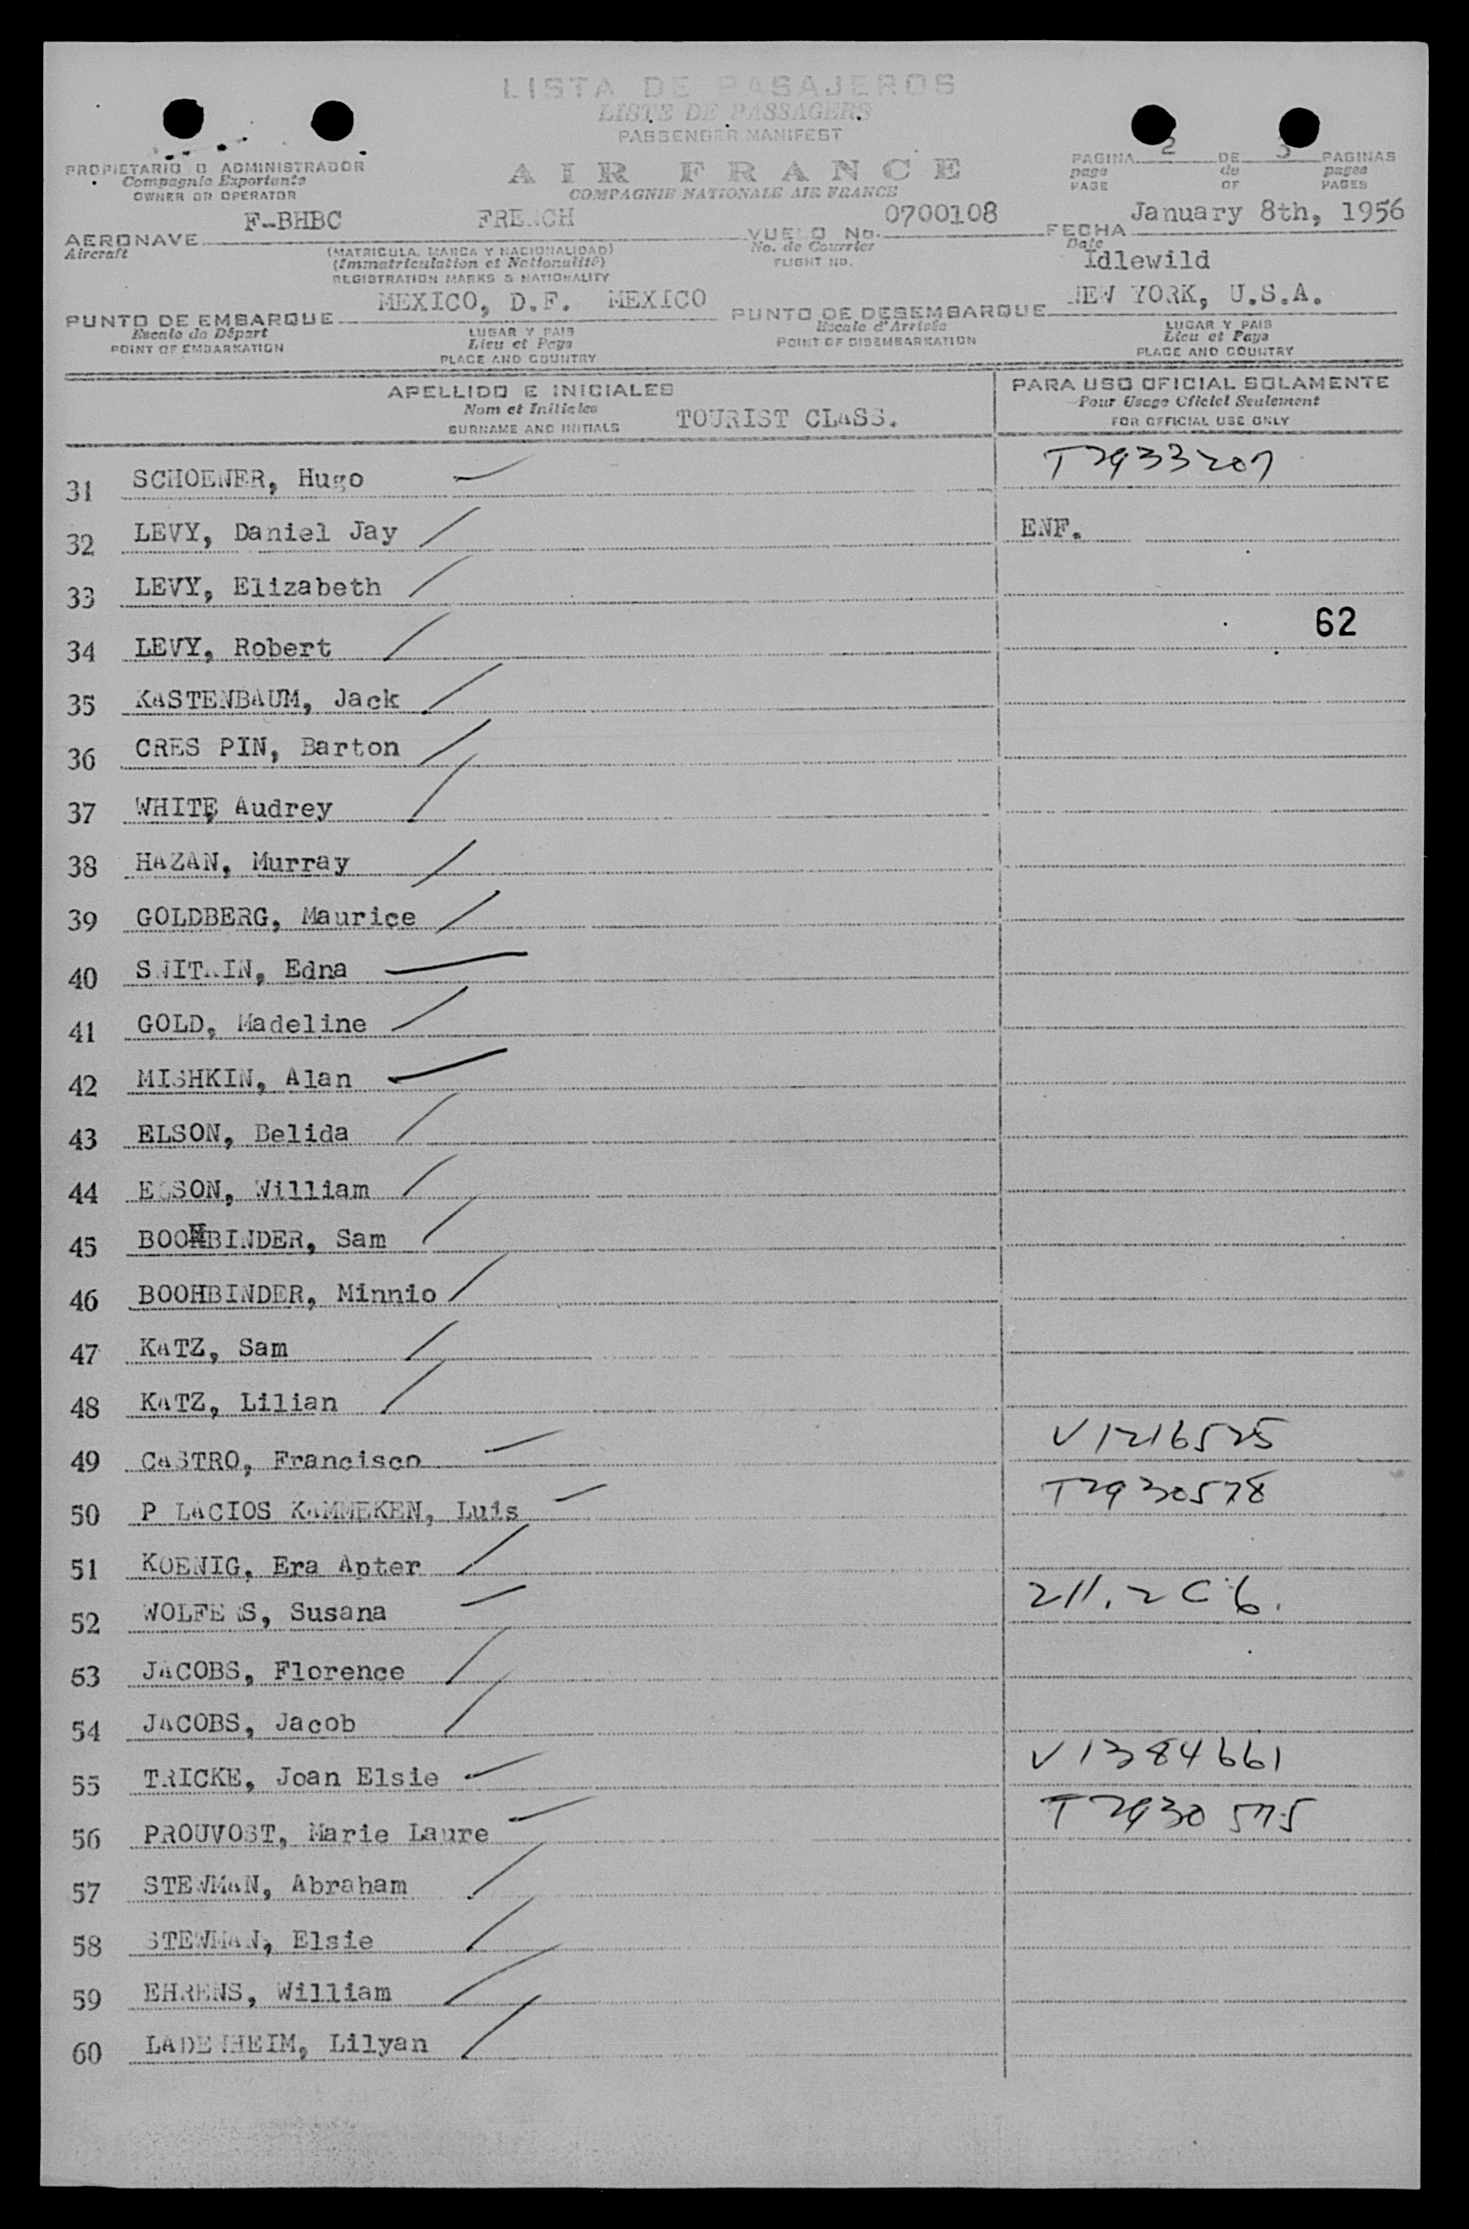 LISTA DE PASAJEROS
LISTE DE PASSAGERS
PASSENGER MANIFEST
AIR FRANCE
COMPAGNIE NATIONALE AIR FRANCE
PROPIETARIO O ADMINISTRADOR
Compagnie Exportante
OWNER OR OPERATOR
PAGINA 2 DE 3 PAGINAS
page de pages
PAGE OF PAGES
AERONAVE F-BHBC FRENCH VUELO No. 0700108 FECHA January 8th, 1956
Aircraft (MATRICULA, MARCA Y NACIONALIDAD) No. de Courrier Date
(Immatriculation et Nationalité) FLIGHT NO.
REGISTRATION MARKS & NATIONALITY
Idlewild
PUNTO DE EMBARQUE MEXICO, D.F. MEXICO PUNTO DE DESEMBARQUE NEW YORK, U.S.A.
Escale de Départ LUGAR Y PAIS Escale d'Arrivée LUGAR Y PAIS
POINT OF EMBARKATION Lieu et Pays POINT OF DISEMBARKATION Lieu et Pays
PLACE AND COUNTRY PLACE AND COUNTRY
APELLIDO E INICIALES PARA USO OFICIAL SOLAMENTE
Nom et Initiales Pour Usage Officiel Seulement
SURNAME AND INITIALS TOURIST CLASS. FOR OFFICIAL USE ONLY
31 SCHOENER, Hugo T2933207
32 LEVY, Daniel Jay ENF.
33 LEVY, Elizabeth
62
34 LEVY, Robert
35 KASTENBAUM, Jack
36 CRES PIN, Barton
37 WHITE, Audrey
38 HAZAN, Murray
39 GOLDBERG, Maurice
40 Edna
41 GOLD, Madeline
42 MISHKIN, Alan
43 ELSON, Belida
44 ELSON, William
45 BOOHBINDER, Sam
46 BOOHBINDER, Minnio
47 KATZ, Sam
48 KATZ, Lilian
49 CASTRO, Francisco V1216525
50 PALACIOS KAMMEKEN, Luis T2930578
51 KOENIG, Era Apter
52 WOLFERS, Susana 211.2 C 6.
53 JACOBS, Florence
54 JACOBS, Jacob
55 TRICKE, Joan Elsie V1384661
56 PROUVOST, Marie Laure T2930575
57 STEWMAN, Abraham
58 STEWMAN, Elsie
59 EHRENS, William
60 LADENHEIM, Lilyan